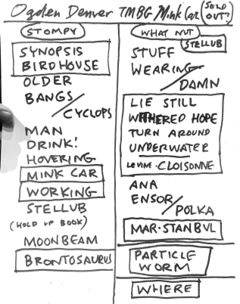 Ogden Denver TMBG Mink Car SOLD OUT?
STOMPY
SYNOPSIS
BIRDHOUSE
OLDER
BANGS /
CYCLOPS
MAN
DRINK!
HOVERING
MINK CAR
WORKING
STELLUB
(HOLD UP BOOK)
MOONBEAM
BRONTOSAURUS
WHAT NUT
STELLUB
STUFF
WEARING /
DAMN
LIE STILL
WITHERED HOPE
TURN AROUND
UNDERWATER
LEVINE - CLOISONNE
ANA
ENSOR /
POLKA
MAR. STANBUL
PARTICLE
WORM
WHERE